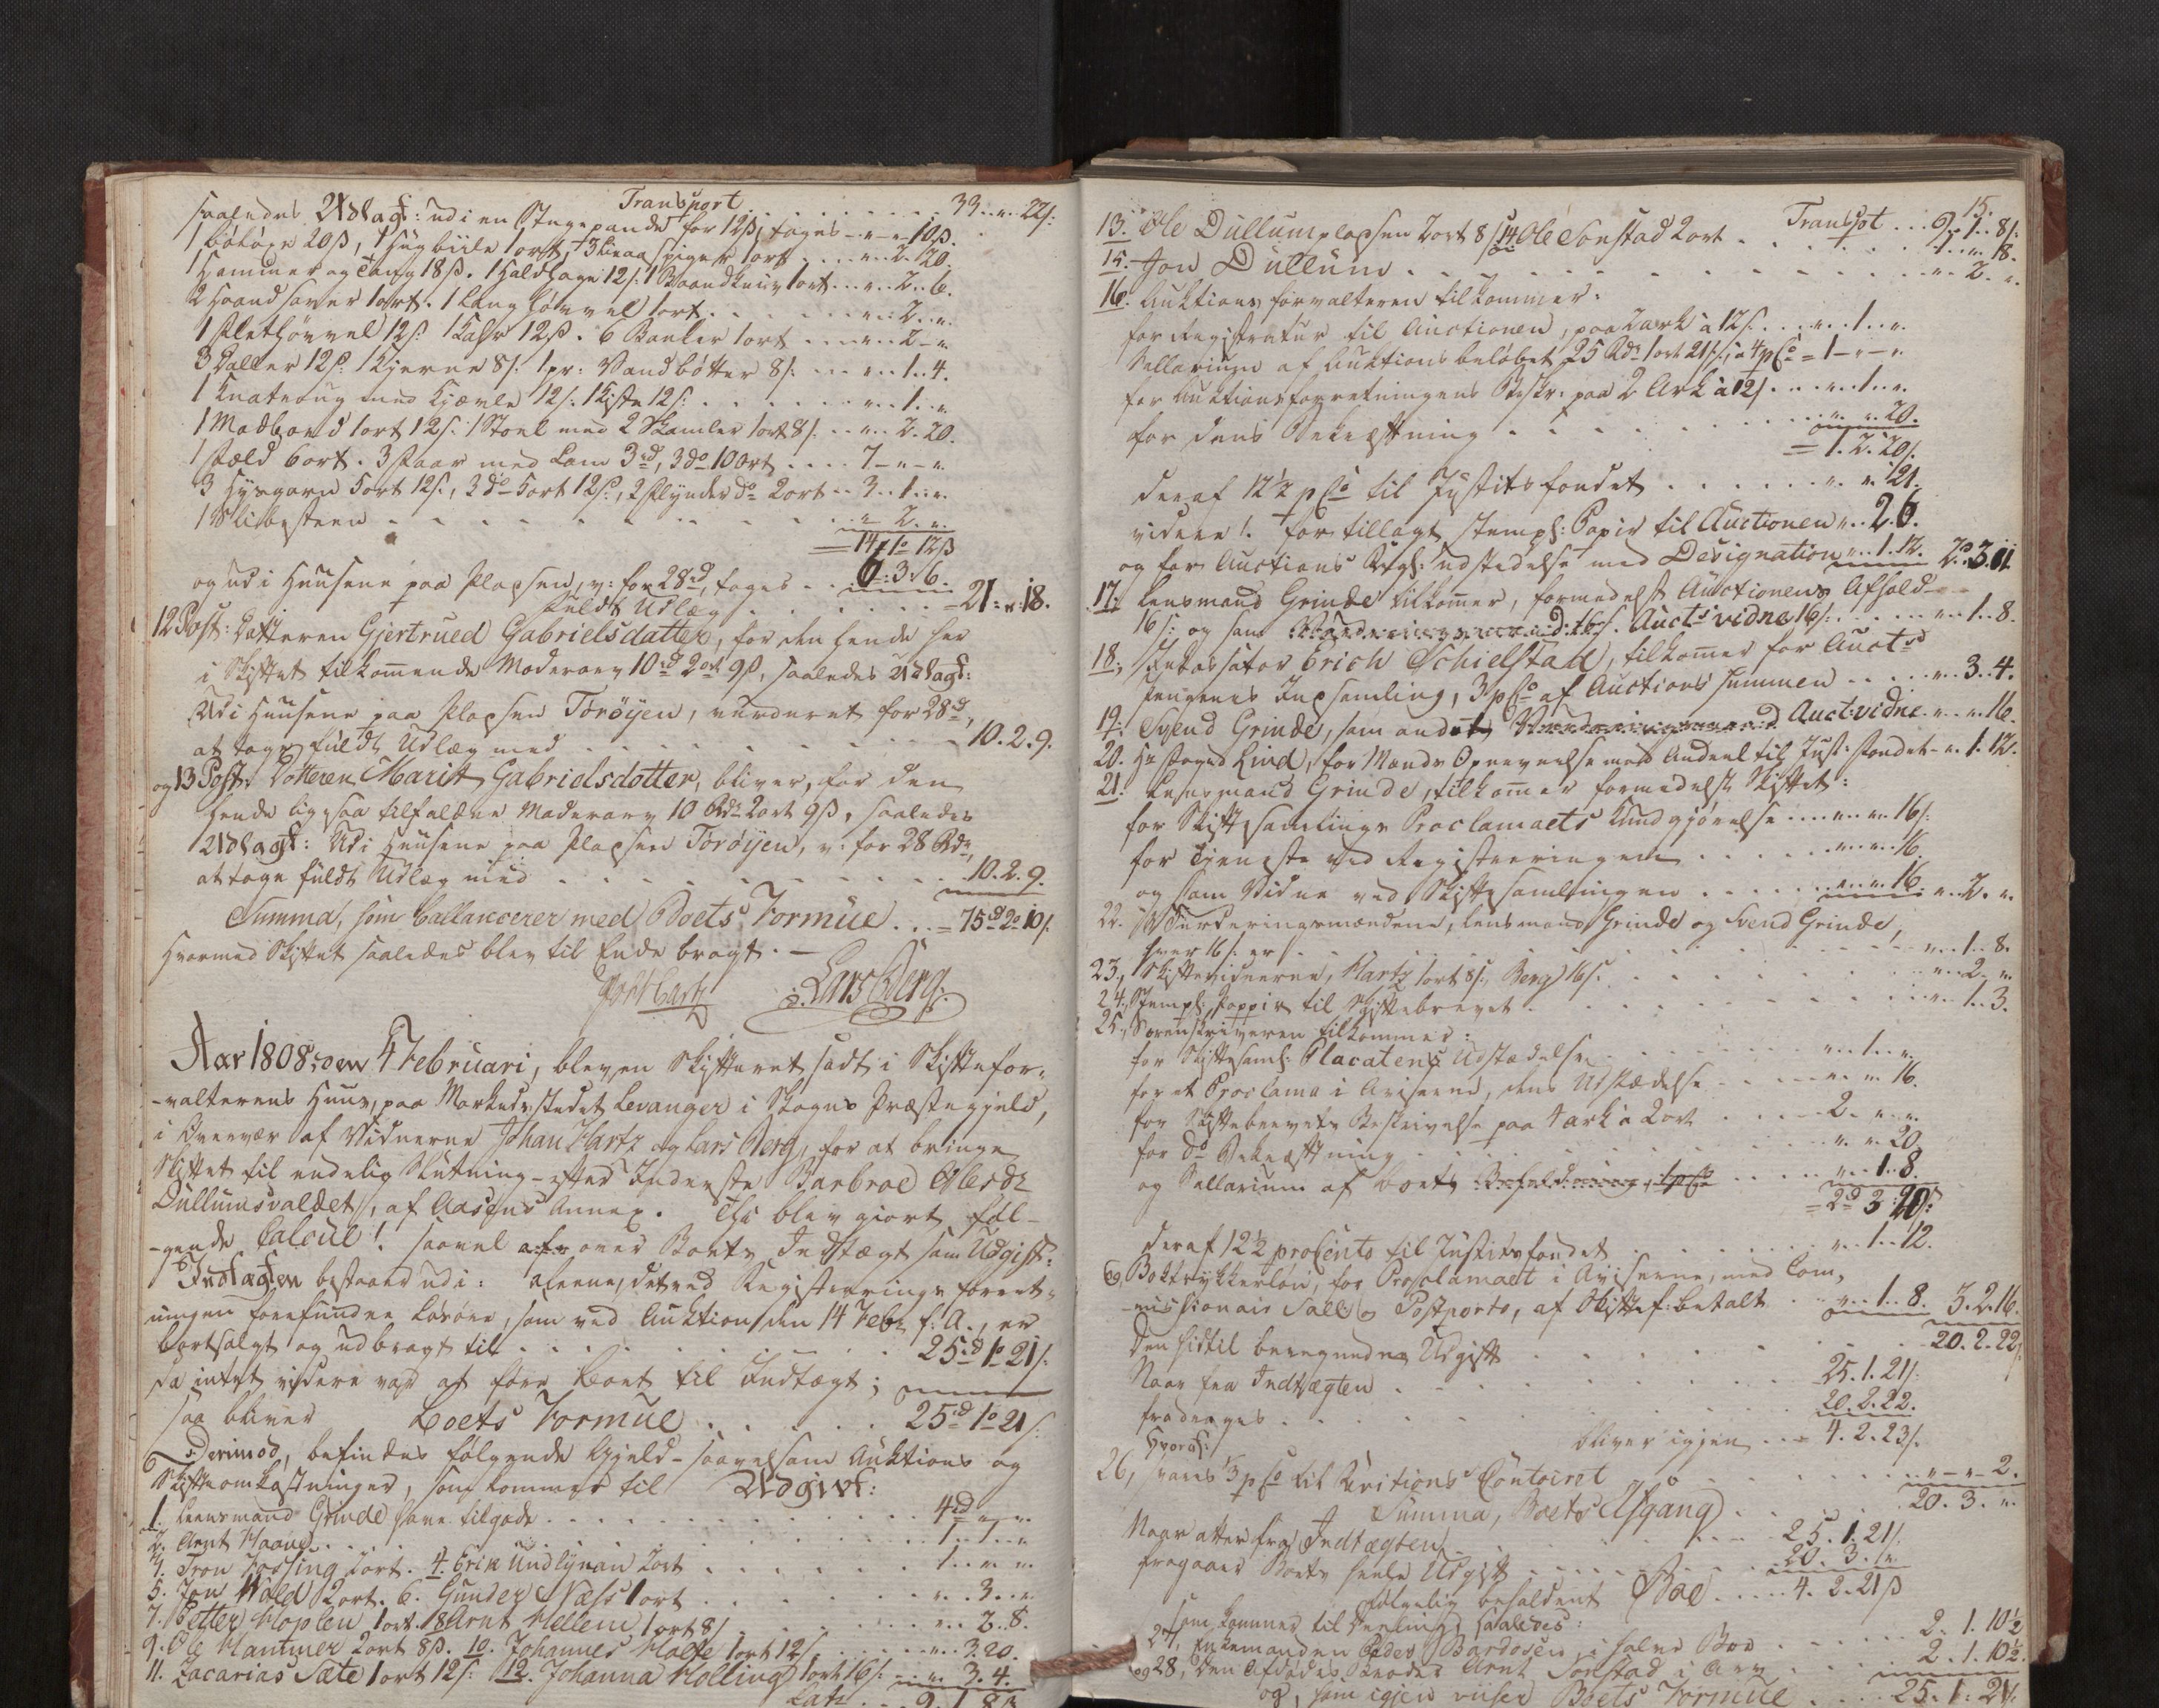 Transport . . . . . . . . . 33..".22 s:
saaledes Udlagt: udi en Stegepande for 12 ß, tages - " - 10 ß.
1 Høløxe 20 ß, 1 Hugbiile 1 ort, 3 Liaaspiger 1 ort . . . " . 2. 20.
1 Hammer og Tang 18 ß. 1 Haldsage 12 s: 1 Baandkniv 1 ort . . . " . . 2. . 6.
2 Haandsaver 1 ort. 1 Langhøvvel 1 ort . . . . . " . . 2 . . ".
1 Sletthøvvel 12 s: 1 12 ß. 6 Banker 1 ort . . . . " . . 2 - ".
3 Daller 12 ß. 1 Kjerne 8 s: 1 pr: Vandbøtter 8 s: . . . " . . 1. . 4.
1 Knatroug med Kjævle 12 s. 1 Kiste 12 s: . . . . . " . . 1 . . ".
1 Madbord 1 ort 12 s: 1 Stoel med 2 Skamler 1 ort 8 s. . . " . . 2. 20.
1 Fæld 6 ort. 3 Faar med Lam 3 rd, 3 do 10 Ort . . . . 7 - " - ".
3 Hysgarn 5 ort 12 s:, 2 do 5 ort 12 ß, 2 Flynder do 2 ort . . 3 . . 1 . . ".
1 Slibesteen . . . . . . . . . . " 2. ".
= 14 r 1 o 12 ß
og udi Huusene paa Pladsen, v: for 28 rd, tages . . 6 : 3 : 6.
fuldt Udlæg . . . . . . = 21 : " : 18.
12 Post: Datteren Gjertrued Gabrielsdatter, for den hende her
i Skiftet tilkommende Moderarv 10 rd 2 ort 9 ß, saaledes Udlagt:
Udi Huusene paa Pladsen Torøyen, vurderet for 28 rd,
at tage fuldt Udlæg med . . . . . . . . . 10. 2. 9.
og 13 Post: Dotteren Marit Gabrielsdotter, bliver, for den
hende ligesaa tilfaldne Moderarv 10 Rdr 2 ort 9 ß, saaledes
Udlagt: Udi Huusene paa Pladsen Torøyen, v: for 28 Rdr,
at tage fuldt Udlæg med . . . . . . . . . 10. 2. 9.
Summa, som Ballancerer med Boets Formue . . = 75 rd 2 o 10 s:
Hvormed Skiftet saaledes blev til Ende bragt. —
Joh Hartz Lars Berg.
Aar 1808, den 4 Februari, blev en Skifteret sadt i Skiftefor-
-valterens Huus, paa Markedsstedet Levanger i Skogns Præstegjeld,
i Overvær af Vidnerne Johan Hartz og Lars Berg, for at bringe
Skiftet til endelig Slutning - efter Inderste Barbroe Olesdr
Dullumsvaldet, af Aasens Annex. Thi blev giort føl-
-gende Calcul! saavel over Boets Indtægt som Udgift:
Indtægten bestaaer udi: alene, det ved Registerings forret-
ningen forefundne Løsøre, som ved Auktion den 14 Febr f: A., er
bortsolgt og udbragt til . . . . . . . . . 25 rd 1 o 21 s:
da intet videre var at føre Boet til Indtægt;
saa bliver Boets Formue . . . . . . 25 rd 1 o 21 s:
Derimod, befindes følgende Gjeld - saavelsom Auktions og
Skifteomkostninger, som kommer til Udgivt:
1. Leensmand Grinde have tilgode . . . . . . . . . 4 rd " "
2. Arnt Haave . . . . . . . . . . . 1 . . 1 . . "
3. Tron Fossing 2 ort. 4. Erik Undlynan 2 ort . . . . . . 1 . . " . "
5. Jon Wald 2 ort. 6. Gunder Næss 1 ort . . . . . . " . 3 . . "
7. Petter Hoplen 1 ort. 8 Arnt Hellem 1 ort 8 s . . . . . " . . 2. 8.
9. Ole Hammer 2 ort 8 ß. 10. Johannes Holte 1 ort 12 s . . . " . 3. 20.
11. Zacarias Sæte 1 ort 12 s: 12. Johanna Holling 1 ort 16 s: . . " 3. 4.
Lats . . 9. 1 8 ß
15.
Transpt . . . 9. 1. . 8 s:
13. Ole Dullumpladsen 2 ort 8 s 14 Ole Sonstad 2 ort . . . . . 1 . . " . 8.
15. Jon Dullum . . . . . . . . . . . . . " . 2. ".
16. Auktionsforvalteren tilkommer:
for Registratur til Auctionen, paa 2 ark a 12 s. . . . " . . 1 . . ".
Sallarium af Auktionsbeløbet 25 Rdr 1 ort 21 s, a 4 pCo = 1 - " - ".
for Auktionsforretningens Beskr: paa 2 Ark a 12 s . . . " . . 1 . . ".
for dens Bekræftning . . . . . . . . . " . " . 20.
= 1. 2. 20 s.
deraf 12½ pCo til Justitsfondet . . . . . . " . " . 21.
videre!. for tillagt stempl: Papir til Auctionen " . . 2. 6.
og for Auctions Regl: udstedelse med Designation " . . 1. 12. 2. 3. 11
17. Lensmand Grinde tilkommer, formedelst Auctionens Afhold-
16 s: og som Auctsvidne 16 s: . . . . " . . 1. . 8.
18. Inkassator Erich Schielstad, tilkommer for Aucts
pengenes Inpsamling, 3 pCo af Auctions summen . . . . " . . 3. . 4.
19. Svend Grinde, som andet Auct:vidne . " . . " 16.
20. Hr Foged Lind, for Mænds Opnævnelse med Andeel til Just: fondet - ". 1. 12.
21. Lensmand Grinde, tilkommer formedelst Skiftet:
for Skiftesamlings Proclamaets Kundgjørelse . . . . " . . ". 16 s:
for Tjeneste ved Registreringen . . . . . . " . . " . . 16
og som Vidne ved Skiftesamlingen . . . . . . " . . ". 16 . " . . 2. ".
22. Vurderingsmændene, Lensmand Grinde og Svend Grinde,
hver 16 s: er . . . . . . . . . . . . " . . 1. . 8.
23. Skiftevidnerne, Hartz 1 ort 8 s:, Berg 16 s: . . . . . . " . . 2. ".
24. Stempl: Pappir til Skiftebrevet . . . . . . . . " . . 1. . 3.
25. Sorenskriveren tilkommer:
for Skiftesaml: Placatens Udstædelse . . . . . " . . 1 . . ".
for et Proclama i Aviserne, dens Udstædelse . . . . " . . " 16.
for Skiftebrevets Beskrivelse paa 4 ark a 2 ort . . . 2. ". ".
for do Bekræftning . . . . . . . . " . ". 20
og Sallarium af Boets . . . . " . . 1. . 8.
= 2 rd 3 : 20 s:
deraf 12½ proCento til Justitsfondet . . . . . . " . . 1. . 12.
og Boktrykkerløn, for Proclamaet i Aviserne, med Com,
-missionair Sall: og Postporto, af Skiftef: betalt . . " . . 1. . 8. 5. 2. 16.
Den hidtil beregnede Udgift . . . . . . . . 20. 2. 22 s
Naar fra Indtægten . . . . . . . . 25. 1. 21 s:
fradrages . . . . . . . . . . . 20. 2. 22.
bliver igjen . . = 4. 2. 23 s.
Hvoraf:
26, svares ⅓ pCo til Revitions Contoiret . . . . . . . . " - " - 2.
Summa, Boets Afgang . . 20. 3. ".
Naar atter fra Indtægten . . . . . . 25. 1. 21 s
fragaaer Boets heele Udgift . . . . . . 20. 3. ".
følgelig beholdent Boe . . . . 4. 2. 21 ß
som kommer til Deeling, saaledes:
27, Enkemanden Peder Bardosen, i halve Boe . . . . . 2. 1. 10½
og 28, Den Afdødes Broder Arnt Sonstad i Arv . . . . 2. 1. 10½
og, som igjen viiser Boets Formue . . . . 25. 1. 21 s: